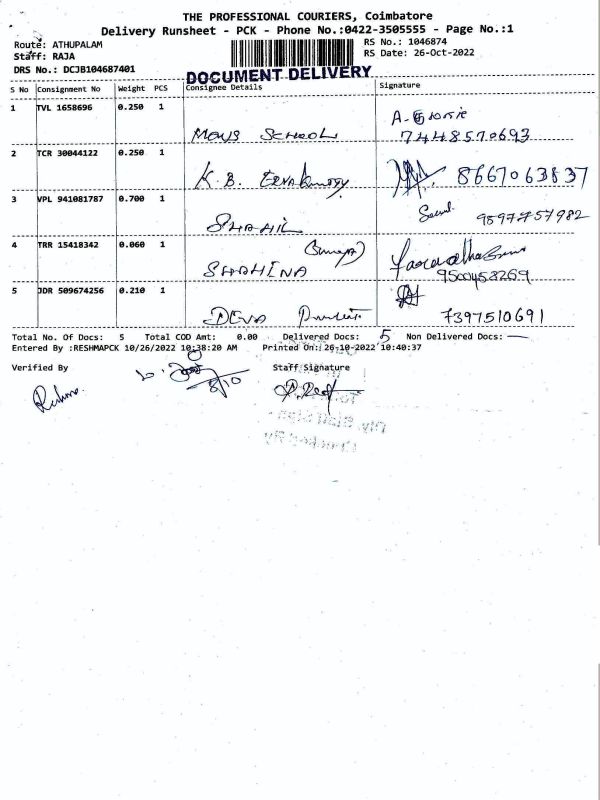 THE PROFESSIONAL COURIERS, Coimbatore
Delivery Runsheet - PCK - Phone No.:0422-3505555 - Page No.:1
Route: ATHUPALAM
RS No.: 1046874
Staff: RAJA
RS Date: 26-Oct-2022
DRS No.: DCJB104687401
DOCUMENT DELIVERY
S No Consignment No Weight PCS Consignee Details Signature
1 TVL 1658696 0.250 1
MOUS SCHOOL 7448570693
2 TCR 30044122 0.250 1
K.B. 8667063837
3 VPL 941081787 0.700 1
SHAHIL 9597757982
4 TRR 15418342 0.060 1
SHAHINA 9500458269
5 JDR 509674256 0.210 1
DEVA 7397510691
Total No. Of Docs: 5 Total COD Amt: 0.00 Delivered Docs: 5 Non Delivered Docs: —
Entered By :RESHMAPCK 10/26/2022 10:38:20 AM Printed On: 26-10-2022 10:40:37
Verified By Staff Signature